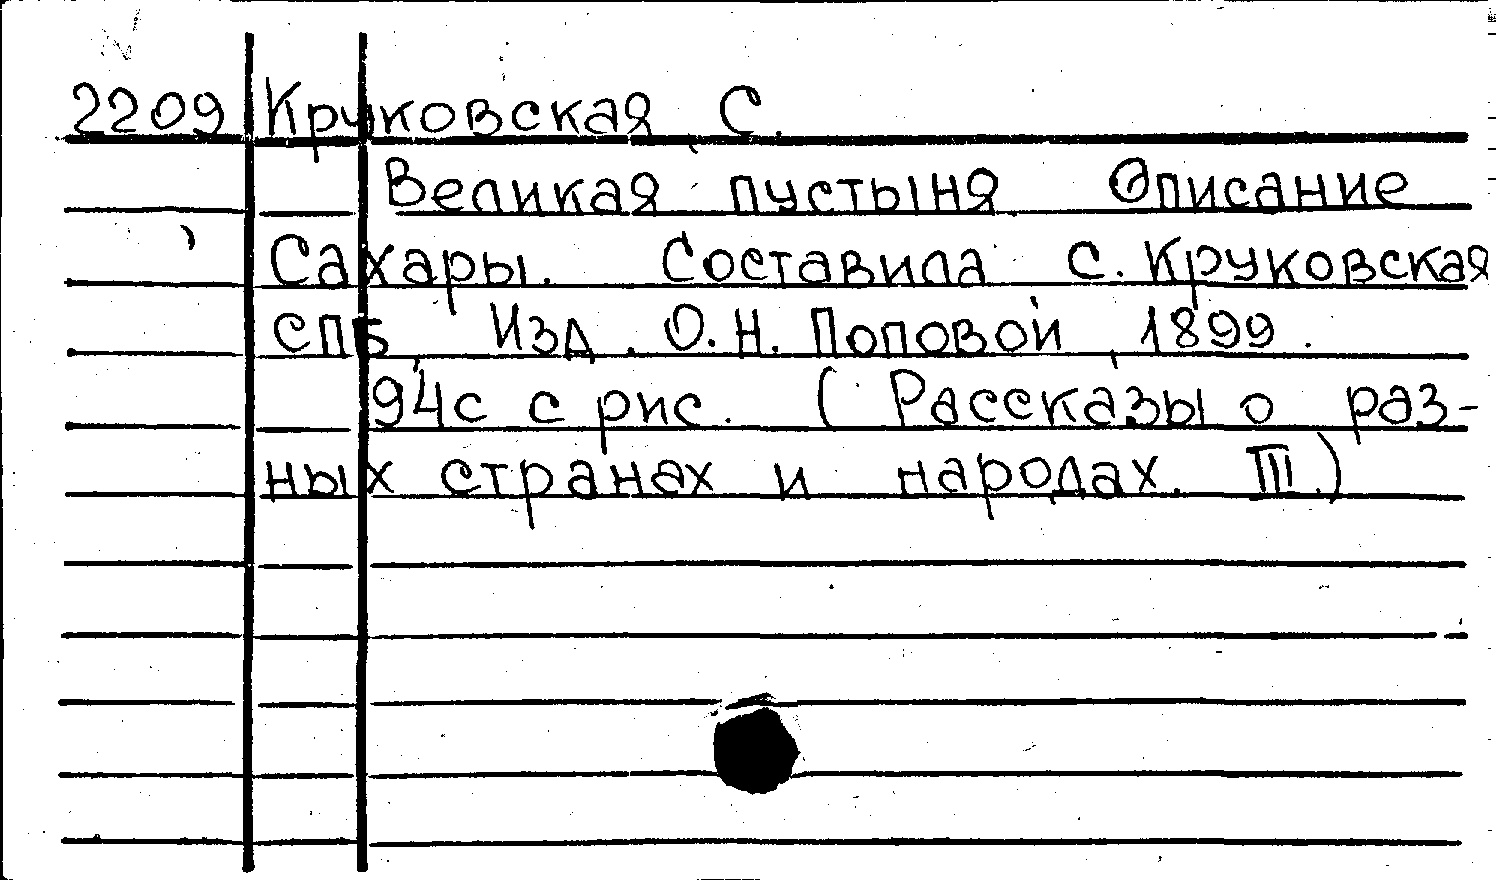 2209 Круковская С.
Великая пустыня Описание
Сахары. Составила С. Круковская
СПБ, Изд. О.Н. Поповой, 1899.
94с с рис. (Рассказы о раз-
ных странах и народах. III.)